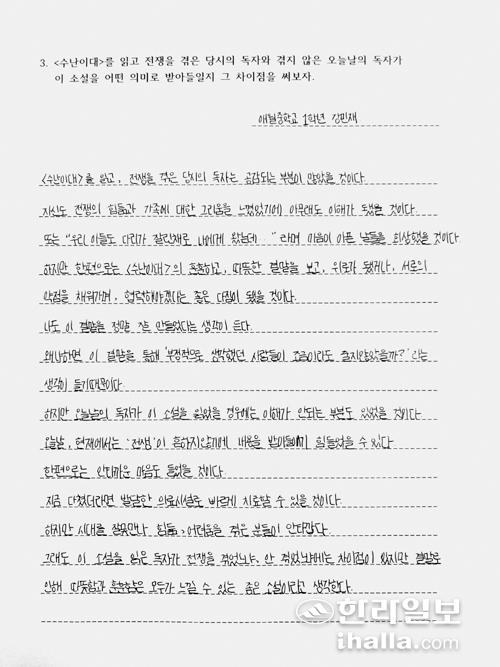 3. <수난이대>를 읽고 전쟁을 겪은 당시의 독자와 겪지 않은 오늘날의 독자가
이 소설을 어떤 의미로 받아들일지 그 차이점을 써보자.
애월중학교 1학년 강민재
<수난이대>를 읽고, 전쟁을 겪은 당시의 독자는 공감되는 부분이 많았을 것이다.
자신도 전쟁의 힘듦과 가족에 대한 그리움을 느꼈었기에 아무래도 이해가 됐을 것이다.
또는 "우리 아들도 다리가 잘린채로 나에게 왔는데..." 라며 마음이 아픈 날들을 회상했을 것이다
하지만 한편으로는 <수난이대>의 훈훈하고, 따뜻한 결말을 보고, 위로가 됐거나, 서로의
약점을 채워가며, 협력해야겠다는 좋은 다짐이 됐을 것이다.
나도 이 결말을 정말 잘 만들었다는 생각이 든다.
왜냐하면 이 결말을 통해 '부정적으로 생각했던 사람들이 조금이라도 줄지않았을까?' 라는
생각이 들기때문이다
하지만 오늘날의 독자가 이 소설을 읽었을 경우에는 이해가 안되는 부분도 있었을 것이다.
오늘날, 현재에서는 '전쟁'이 흔하지않기에 내용을 받아들이기 힘들었을 수 있다.
한편으로는 안타까운 마음도 들었을 것이다.
지금 다쳤더라면 발달한 의료시설로 빠르게 치료될 수 있을 것이다.
하지만 시대를 잘못만나 힘듦, 어려움을 겪은 분들이 안타깝다.
그래도 이 소설을 읽은 독자가 전쟁을 겪었느냐, 안 겪었느냐에는 차이점이 있지만 결말로
인해 따뜻함과 훈훈함은 모두가 느낄 수 있는 좋은 소설이라고 생각한다.
한라일보
ihalla.com